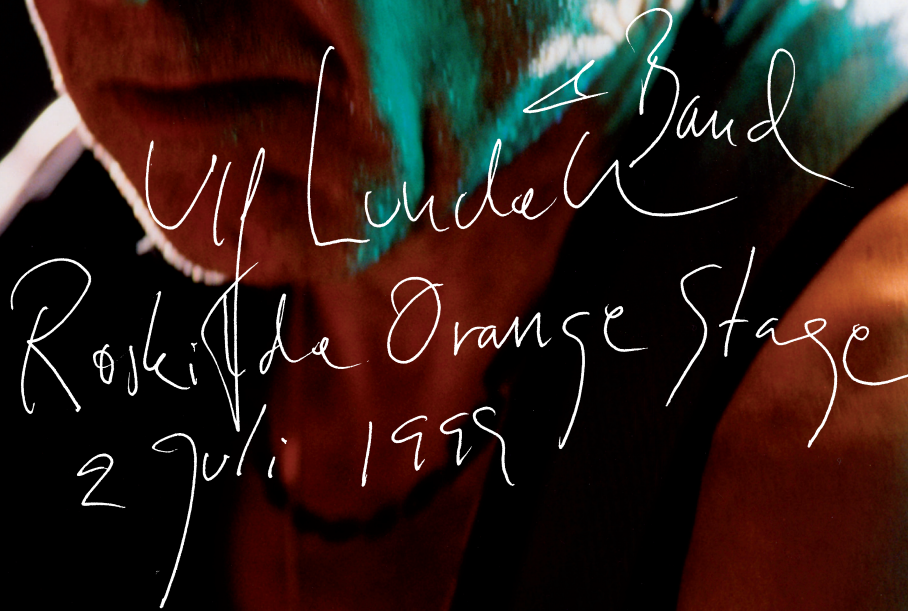 Ulf Lundell & Band
Roskilde Orange Stage
2 Juli 1999